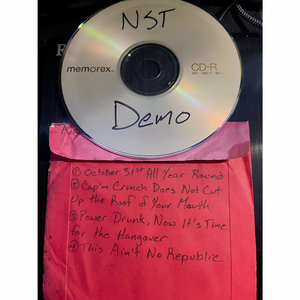 NST
memorex
CD-R
Demo
① October 31st All Year Round
② Cap'm Crunch Does Not Cut
Up the Roof of Your Mouth
③ Power Drunk, Now It's Time
for the Hangover
④ This Ain't No Republic